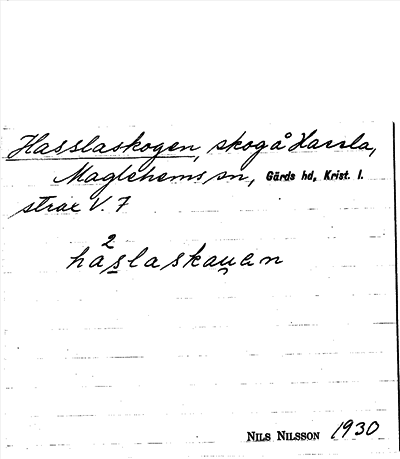 Hasslaskogen, skog å Hassla,
Maglehems sn, Gärds hd, Krist. l.
strax V. 7
2
haslaskauen
NILS NILSSON 1930